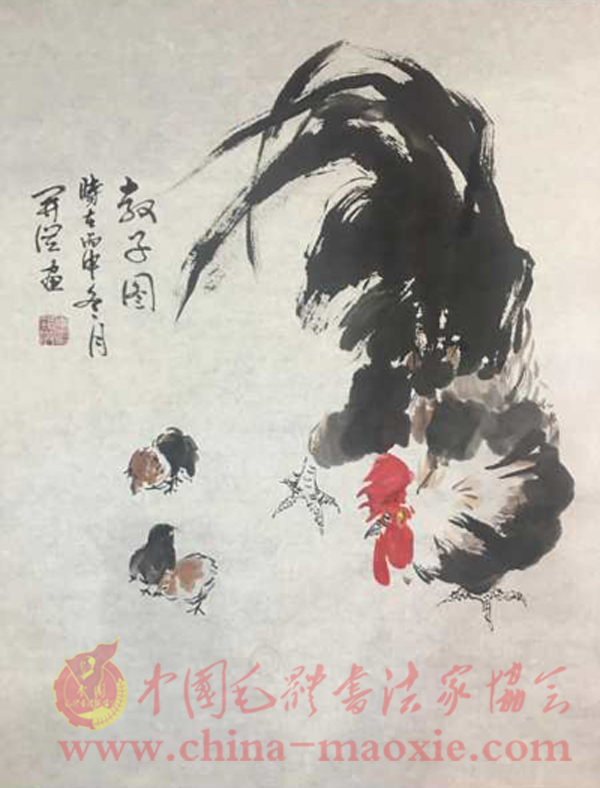 教子图
时在丙申冬月
开源画
中國毛體書法家協会
www.china-maoxie.com